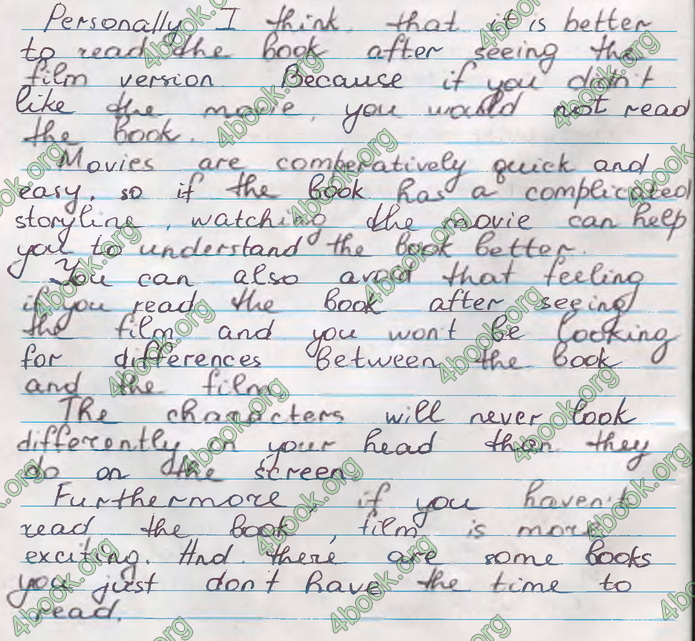 Personally I think that it is better
to read the book after seeing the
film version. Because if you didn't
like the movie, you would not read
the book.
Movies are comberatively quick and
easy, so if the book has a complicated
storyline, watching the movie can help
you to understand the book better.
You can also avoid that feeling
if you read the book after seeing
the film and you won't be looking
for differences between the book
and the film
The characters will never look
differently in your head than they
do on the screen
Furthermore, if you haven't
read the book, film is more
exciting. And there are some books
you just don't have the time to
read.
4book.org